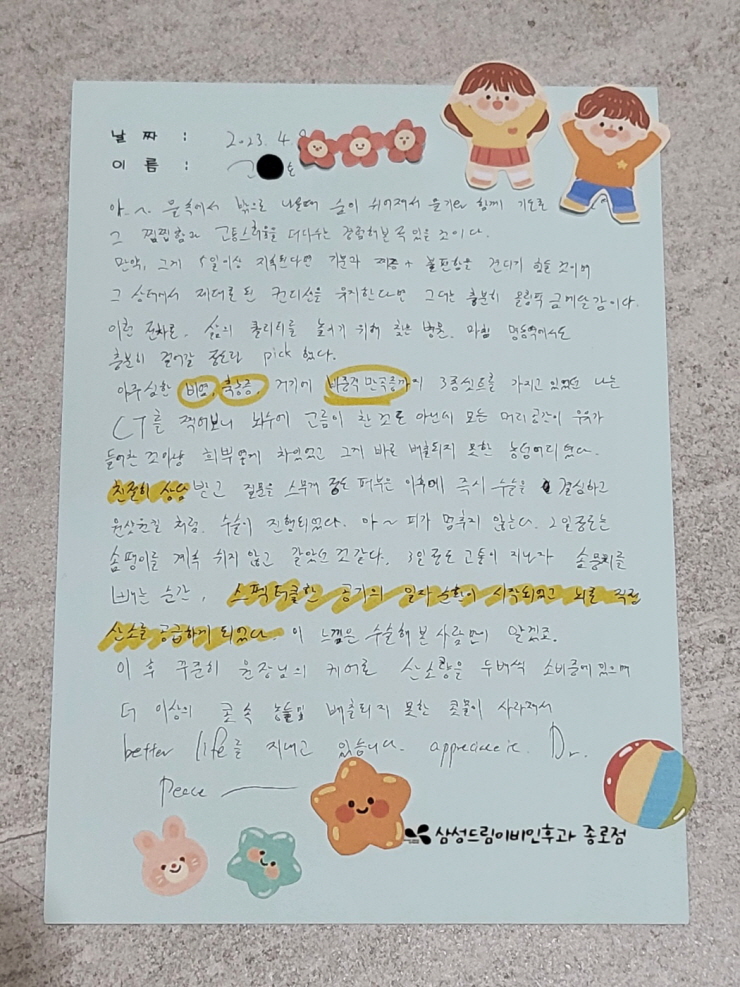 날 짜 : 2023. 4.
이 름 : 호
아~ 물속에서 밖으로 나올때 숨이 쉬어져서
그 찜찜함과 고통스러움을 더다수는 경험해본 적 있을 것이다.
만약, 그게 5일이상 지속된다면 기분과 + 불편함을 견디기 힘들 것이며
그 상태에서 제대로 된 컨디션을 유지한다면 그대는 충분히 올림픽 금메달감이다.
이런 전차로, 삶의 퀄리티를 높이기 위해 찾은 병원. 마침 명동역에서도
충분히 걸어갈 정도라 pick 했다.
아주 심한 비염, 축농증, 거기에 비중격 만곡증까지 3종셋트를 가지고 있었던 나는
CT를 찍어보니 뇌수에 고름이 찬 것도 아닌데 모든 머리 공간이 우유가
들어찬 것 마냥 희뿌옇게 차있었고 그게 바로 배출되지 못한 농덩어리였다.
친절히 상담 받고 질문을 스무개 정도 퍼부은 이후에 즉시 수술을 결심하고
수술이 진행되었다. 아~ 피가 멈추지 않는다. 2일정도는
솜뭉이를 계속 쉬지 않고 갈았던 것 같다. 3일정도 고통이 지나자 솜뭉치를
빼는 순간, 스펙터클한 공기의 일자순환이 시작되었고 뇌로 직접
산소를 공급하게 되었다. 이 느낌은 수술해 본 사람만이 알겠죠.
이 후 꾸준히 원장님의 케어로 산소량을 두배씩 소비중에 있으며
더 이상의 콧 속 농들및 배출되지 못한 콧물이 사라져서
better life를 지내고 있습니다. appreciate. Dr.
Peace
삼성드림이비인후과 종로점